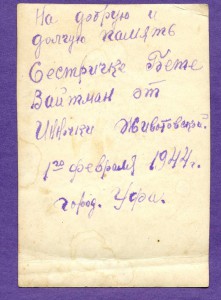 На добрую и
долгую память
Сестричке Бете
Вайтман от
Инночки Животовской.
1го февраля 1944 г.
город. Уфа.